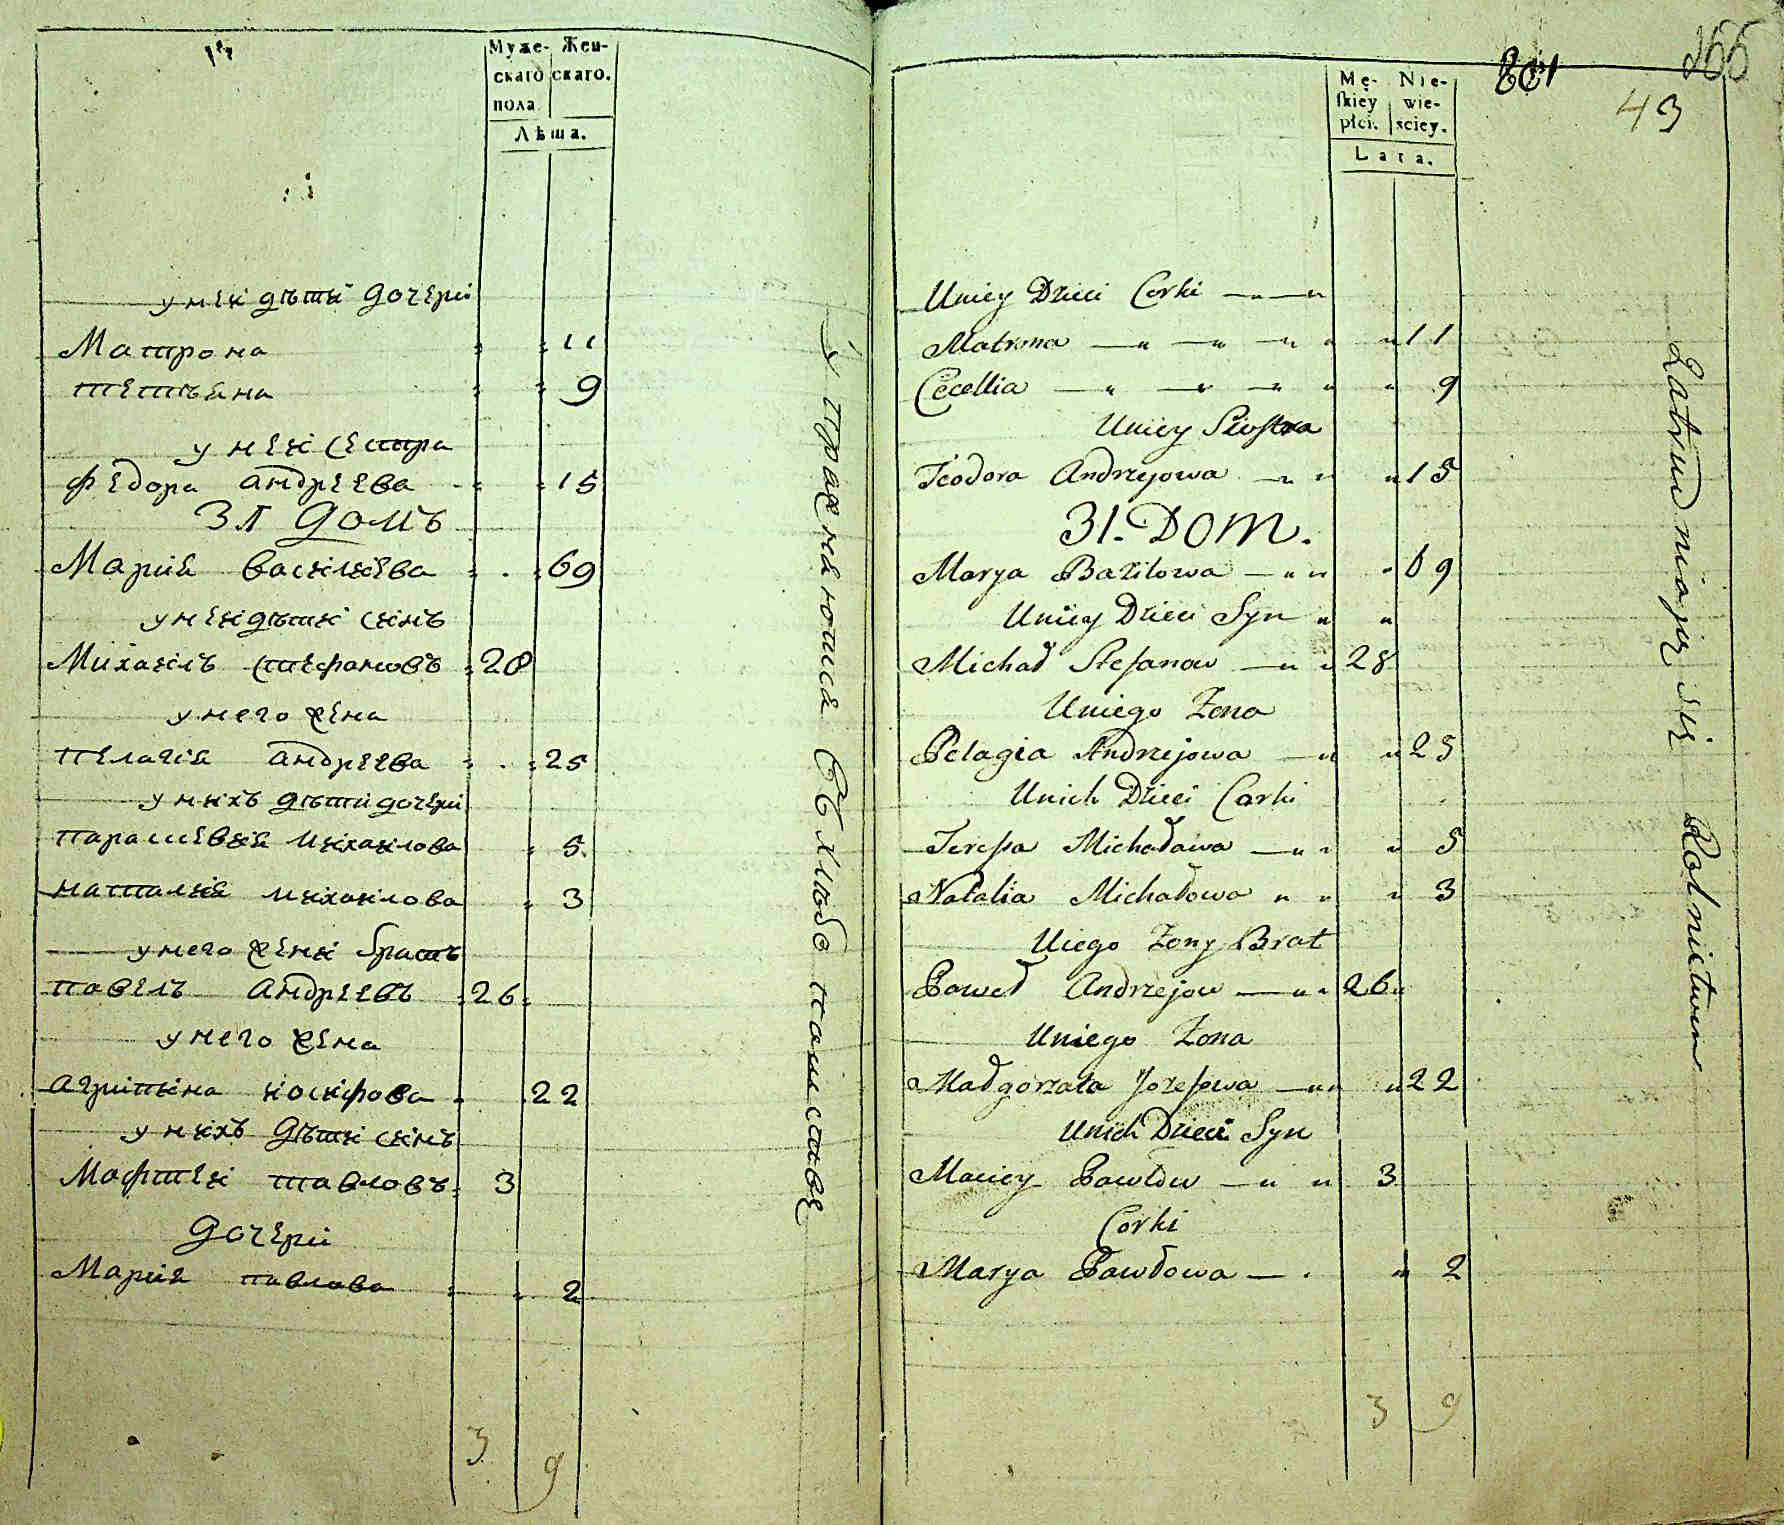 Муже- Жен-
скаго скаго.
пола
Лѣта.
у неи дѣти дочери
Матрона 11
тетъяна 9
у неи сестра
Федора андреева 15
31 домъ
Мария василиева 69
у неи дѣти синъ
Михаилъ стефановъ 28
у него жена
пелагия андреева 25
у нихъ дѣти дочери
парашевия михаилова 5
наталия михаилова 3
у него жени братъ
павелъ андреевъ 26
у него жена
агрипина иосифова 22
у нихъ дѣти синъ
Мафтеи павловъ 3
дочери
Мария павлова 2
3 9
801
266
43
Mę- Nie-
skiey wie-
płci. sciey.
Lata.
Uniey Dzieci Corki
Matrona 11
Cecellia 9
Uniey Siostra
Teodora Andrzejowa 15
31. Dom.
Marya Bazilowa 69
Uniey Dzieci Syn
Michał Stefanow 28
Uniego Zona
Pelagia Andrzejowa 25
Unich Dzieci Corki
Teressa Michałowa 5
Natalia Michałowa 3
Uiego Zony Brat
Paweł Andrzejow 26
Uniego Zona
Małgorzata Jozefowa 22
Unich Dzieci Syn
Maciey Pawłow 3
Corki
Marya Pawłowa 2
3 9
Zatrudniają się Rolnictwem